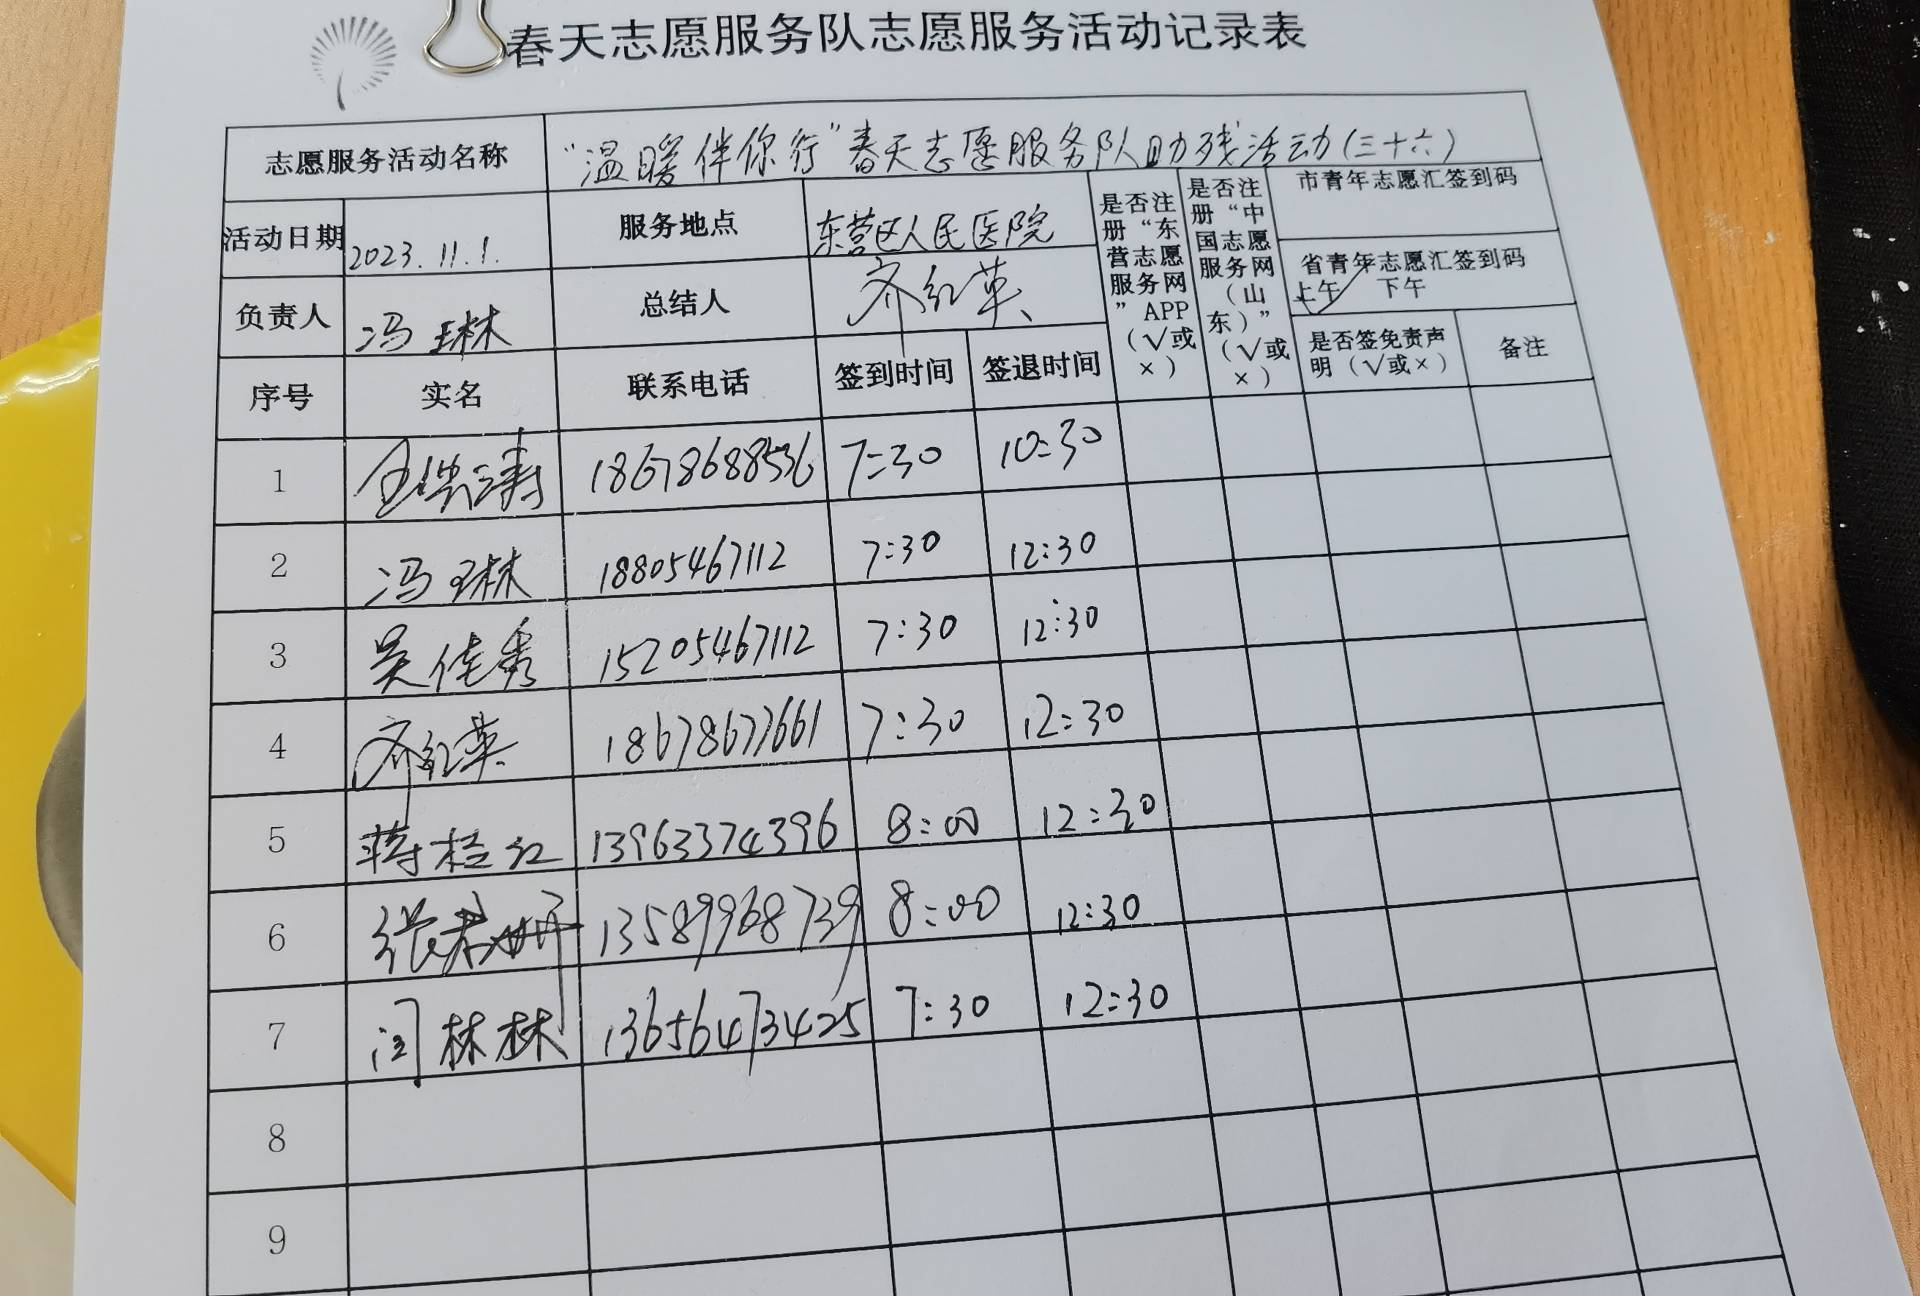 春天志愿服务队志愿服务活动记录表
志愿服务活动名称 “温暖伴你行”春天志愿服务队助残活动(三十六)
活动日期 2023.11.1. 服务地点 东营区人民医院
负责人 冯琳 总结人 齐红英
是否注册“东营志愿服务网”APP(√或×)
是否注册“中国志愿服务网(山东)”(√或×)
市青年志愿汇签到码
省青年志愿汇签到码
上午 下午
是否签免责声明(√或×) 备注
序号 实名 联系电话 签到时间 签退时间
1 18678688536 7:30 10:30
2 冯琳 18805467112 7:30 12:30
3 吴佳秀 15205467112 7:30 12:30
4 齐红英 18678677661 7:30 12:30
5 蒋桂红 13963374396 8:00 12:30
6 张君妍 13589968739 8:00 12:30
7 闫林林 13656473425 7:30 12:30
8
9